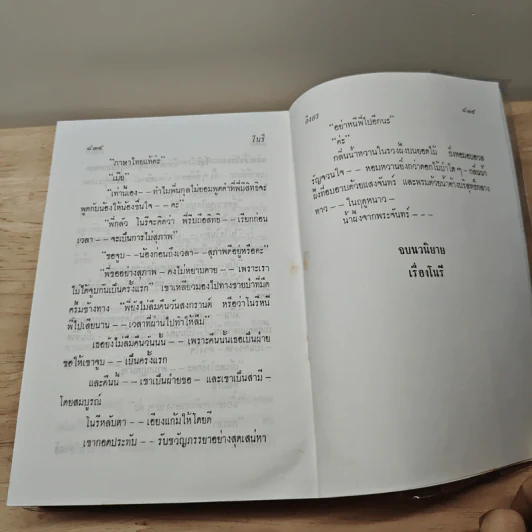 ๘๓๔
โนรี
"ภาษาไทยแท้ค่ะ"
"เมีย"
"เท่านี้เอง - - ทำไมพี่นกุลไม่ยอมพูดคำที่พี่มีสิทธิจะ
พูดกับน้องให้น้องชื่นใจ - - คะ"
"พี่กลัว โนรีจะคิดว่า พี่รีบใช้สิทธิ - - เรียกก่อน
เวลา - - จะเป็นการไม่สุภาพ"
"ขอจูบ - - น้องก่อนถึงเวลา - - สุภาพดีอยู่หรือคะ"
"พี่ขออย่างสุภาพ - คงไม่หยาบคาย - - เพราะเรา
ไม่ได้จูบกันเป็นครั้งแรก" เขาเหลียวมองไปทางชายป่าที่มืด
ครึ้มข้างทาง "พี่ยังไม่ลืมคืนวันสงกรานต์ หรือว่าโนรีหนี
พี่ไปเสียนาน - - เวลาที่ผ่านไปทำให้ลืม"
เธอยังไม่ลืมคืนวันนั้น - - เพราะคืนนั้นเธอเป็นฝ่าย
ขอให้เขาจูบ - - เป็นครั้งแรก
และคืนนี้ - - เขาเป็นฝ่ายขอ - และเขาเป็นสามี -
โดยสมบูรณ์
โนรีหลับตา - - เอียงแก้มให้โดยดี
เขากอดประทับ - - รับขวัญภรรยาอย่างสุดเสน่หา
อิงอร
๘๓๕
"อย่าหนีพี่ไปอีกนะ"
"ค่ะ"
กลิ่นน้ำหวานในรวงผึ้งบนยอดไม้ ยังหอมอบอวล
รัญจวนใจ - - หอมหวานยิ่งกว่าดอกไม้ป่าใด ๆ - กลิ่นรวง
ผึ้งที่อมอาบด้วยแสงจันทร์ และพรมด้วยน้ำค้างบริสุทธิ์กลาง
หาว - - ในฤดูหนาว -
น้ำผึ้งจากพระจันทร์ - - -
จบนวนิยาย
เรื่องโนรี